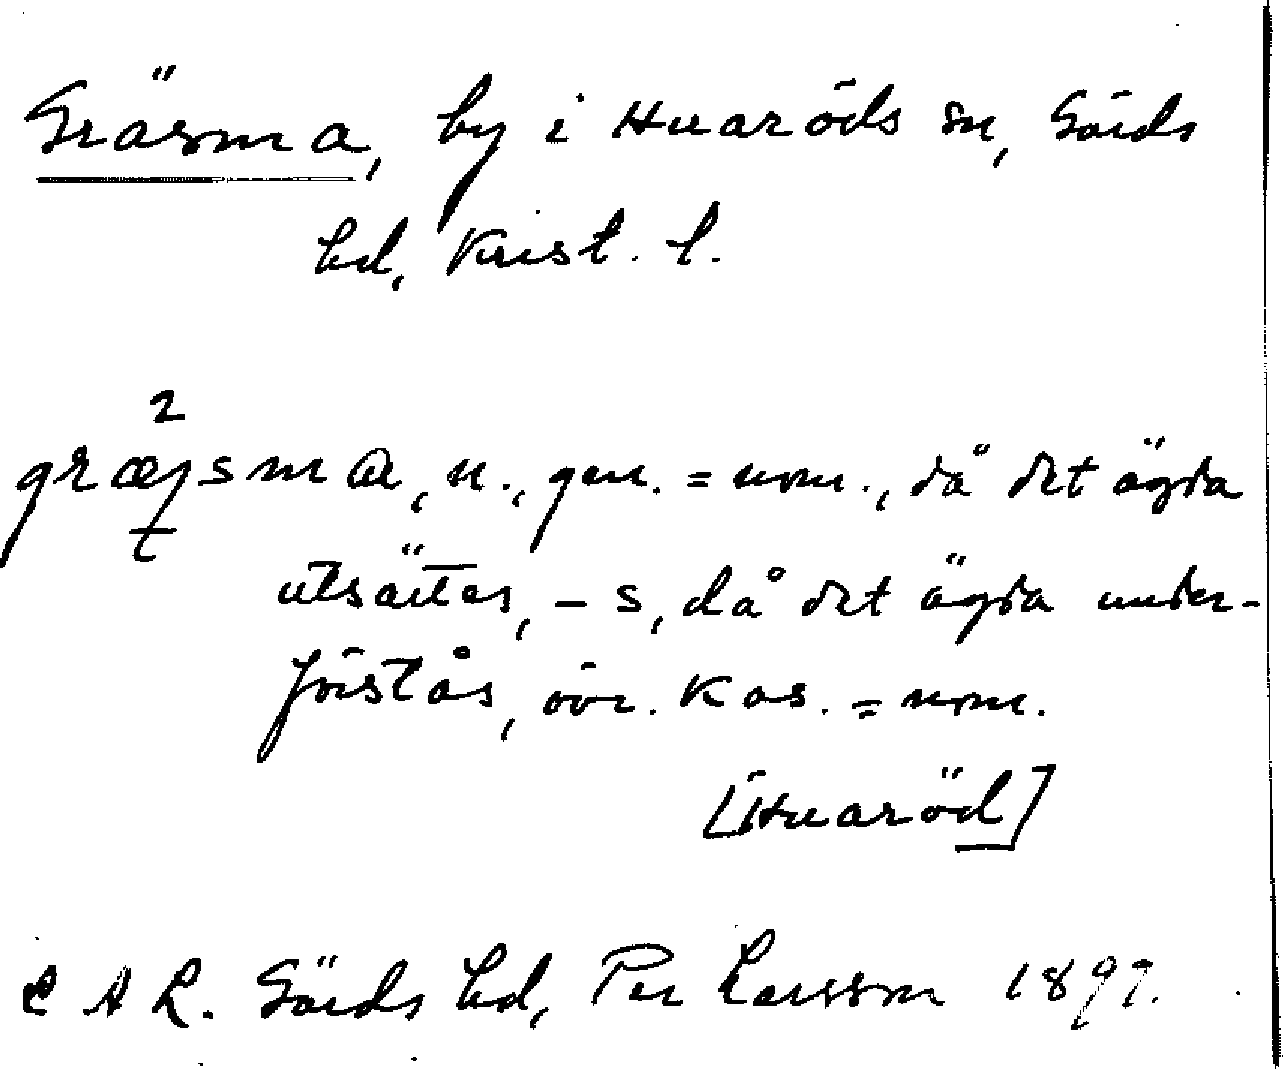 Gräsma, by i Huaröds sn, Gärds
hd, Krist. l.
græjsma, n., gen. = nom., då det ägda
utsättes, -s, då det ägda under-
förstås, övr. kas. = nom.
[Huaröd]
LAL. Gärds hd, Per Larsson 1897.